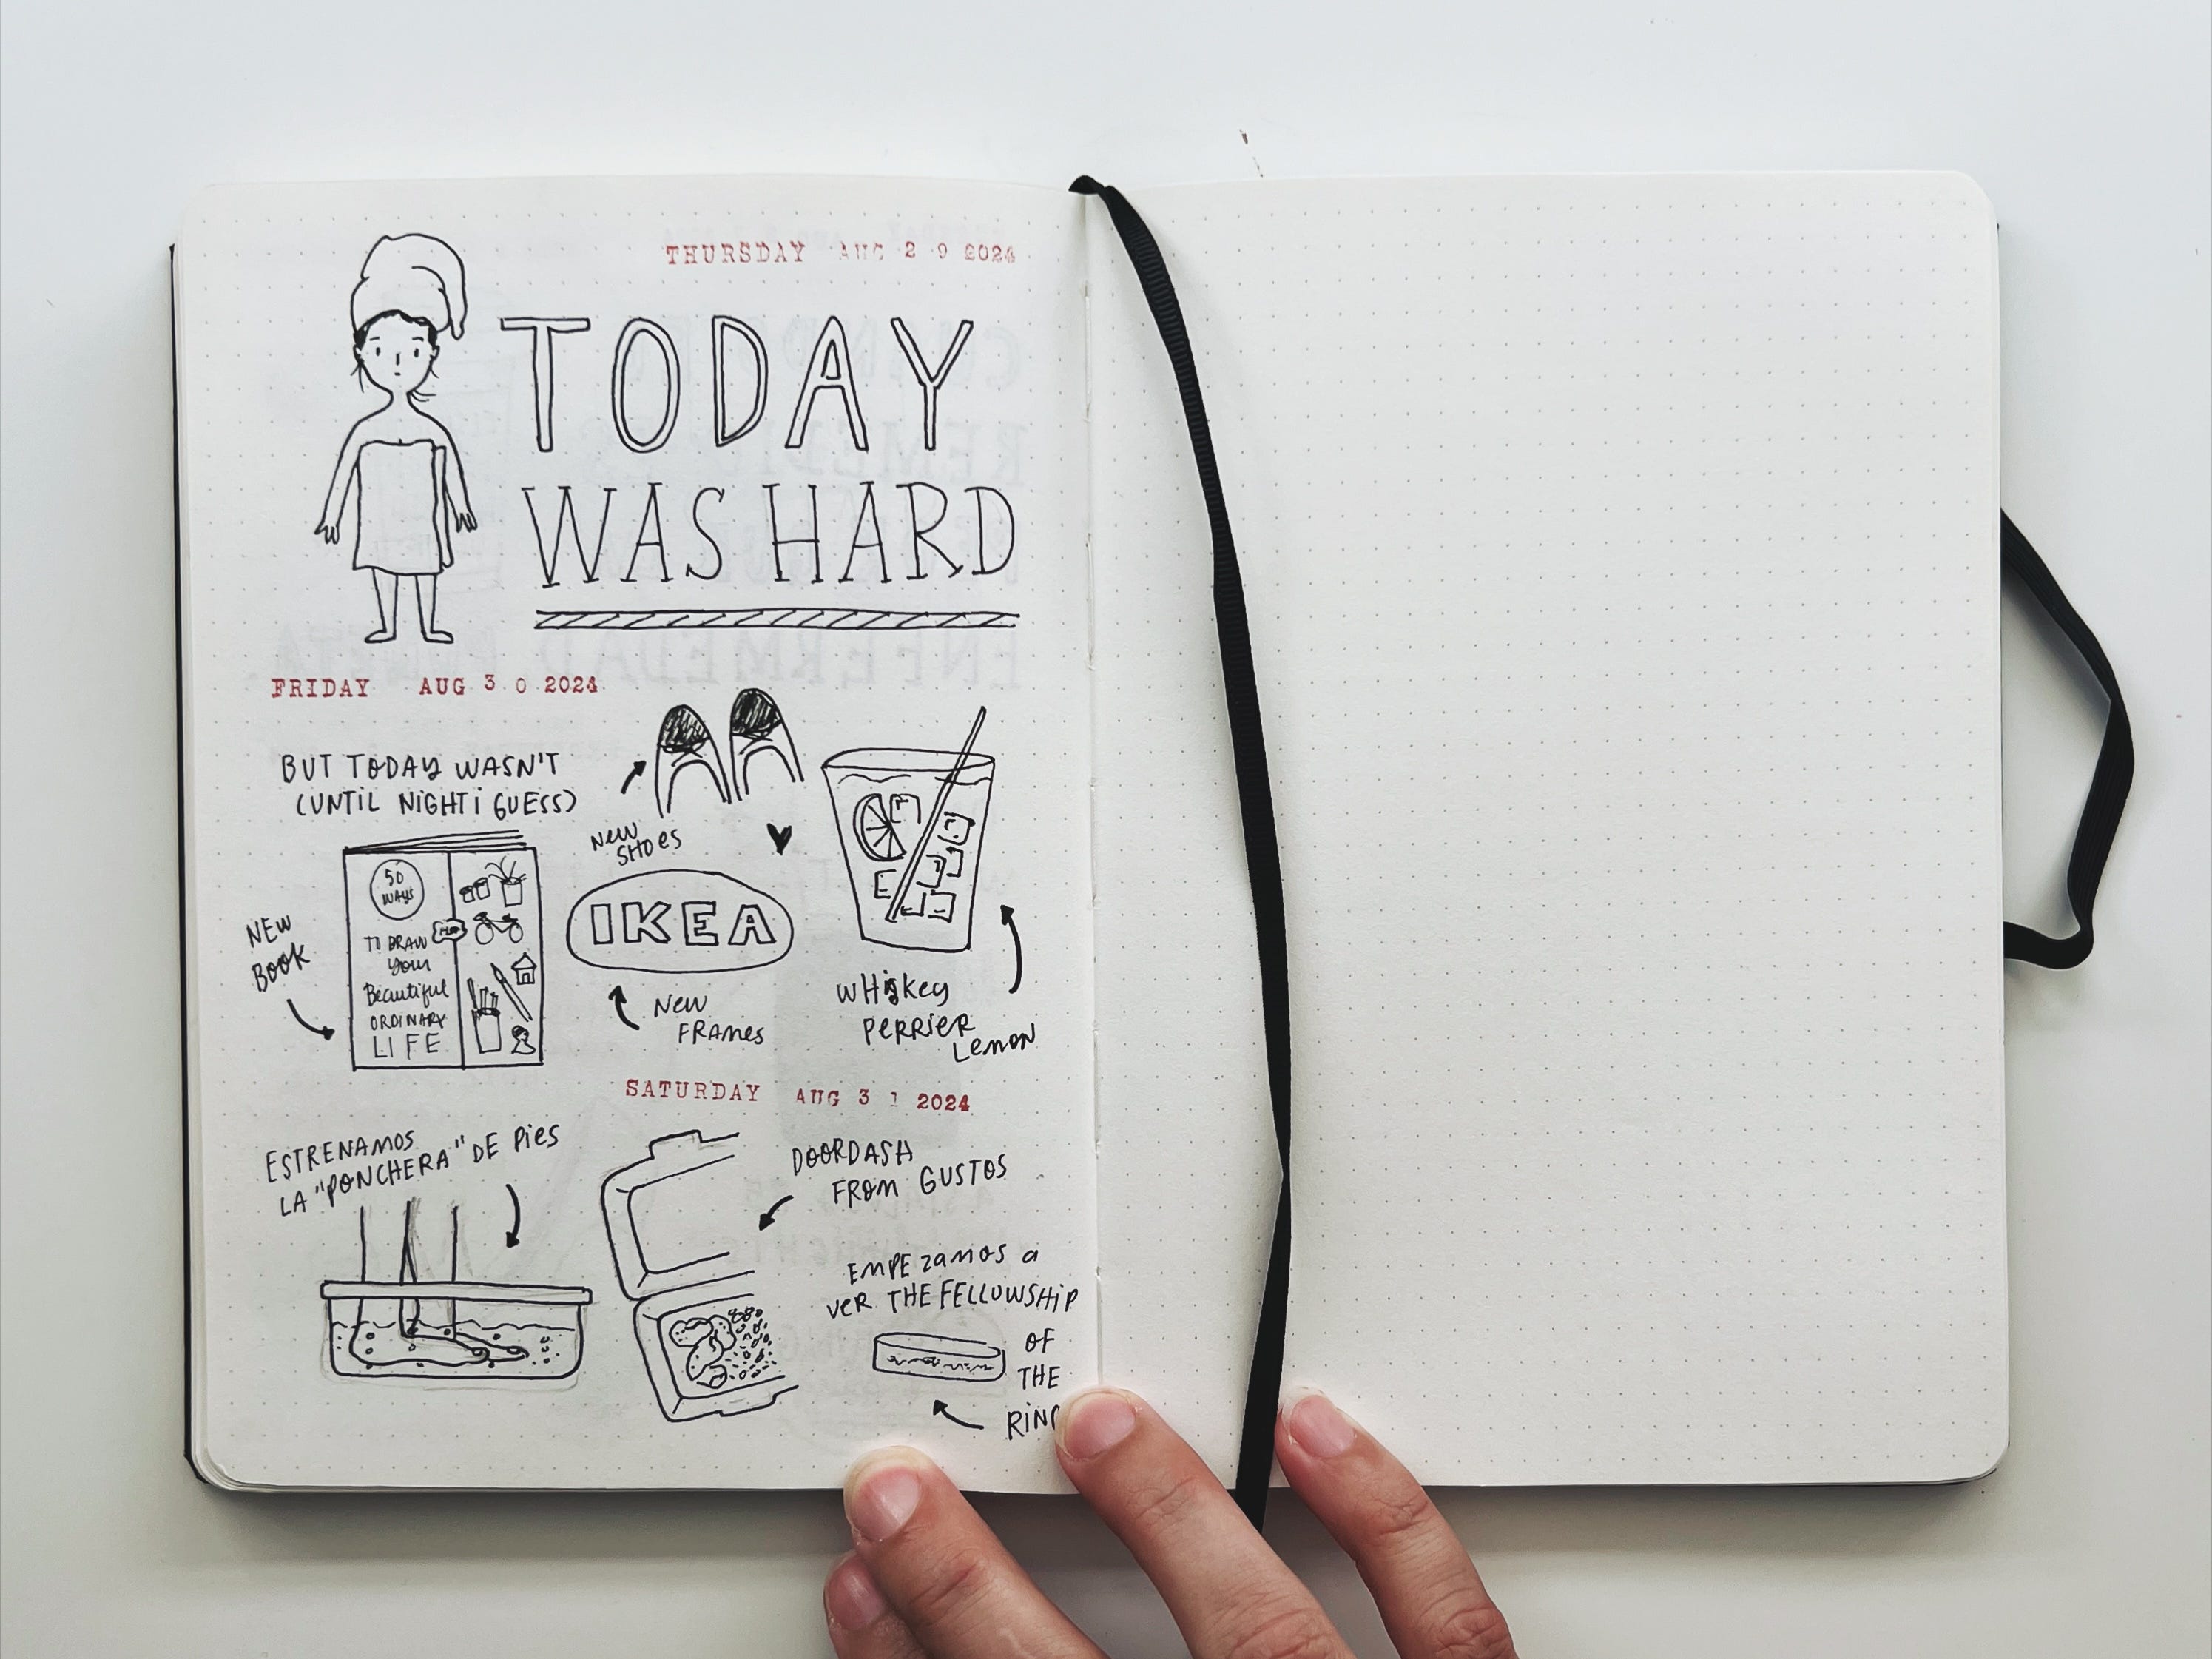 THURSDAY AUG 29 2024
TODAY
WAS HARD
FRIDAY AUG 30 2024
BUT TODAY WASN'T
(UNTIL NIGHT I GUESS)
NEW
SHOES
NEW
BOOK
50
WAYS
TO DRAW
Your
Beautiful
ORDINARY
LIFE
IKEA
NEW
FRAMES
WHISKEY
PERRIER
LEMON
SATURDAY AUG 31 2024
ESTRENAMOS
LA "PONCHERA" DE PIES
DOORDASH
FROM GUSTOS
EMPEZAMOS a
VER THE FELLOWSHIP
OF
THE
RING